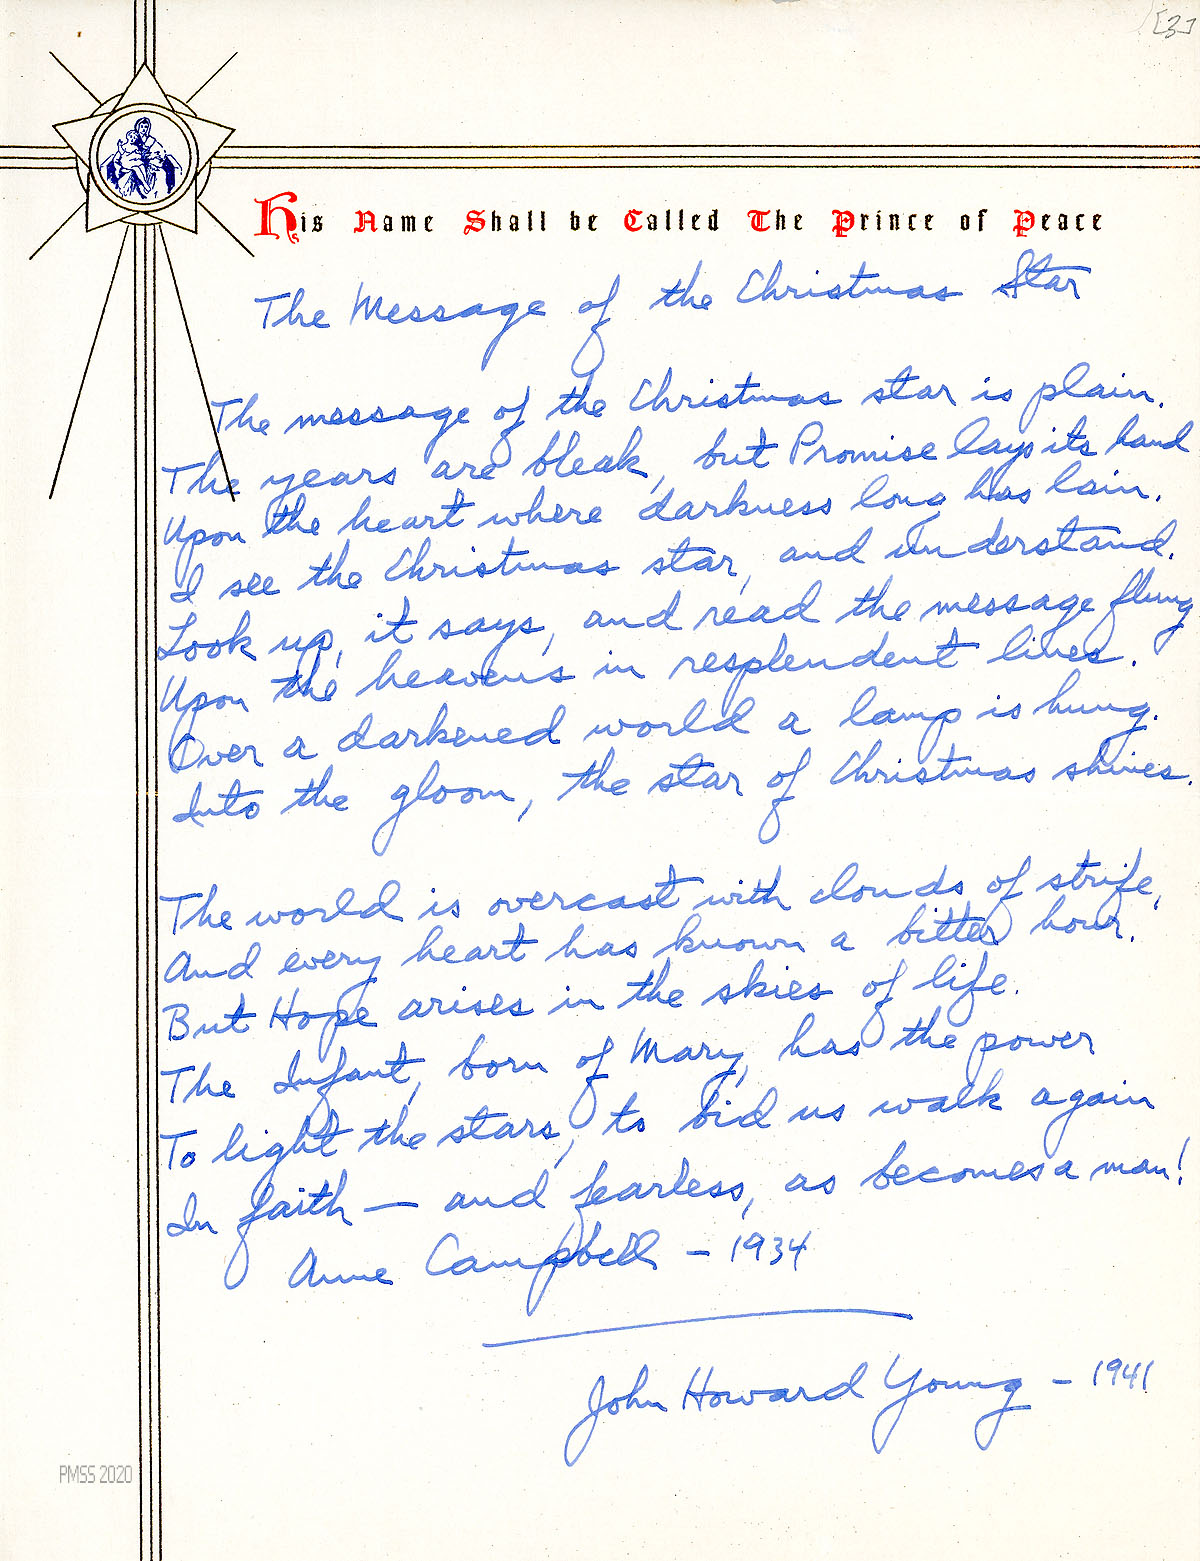 [3]
His Name Shall be Called The Prince of Peace
The Message of the Christmas Star
The message of the Christmas star is plain.
The years are bleak, but Promise lays its hand
Upon the heart where darkness long has lain.
I see the Christmas star, and understand.
Look up, it says, and read the message flung
Upon the heavens in resplendent lines.
Over a darkened world a lamp is hung.
Into the gloom, the star of Christmas shines.
The world is overcast with clouds of strife,
And every heart has known a bitter hour.
But Hope arises in the skies of life.
The Infant, born of Mary, has the power
To light the stars, to bid us walk again
In faith — and fearless, as becomes a man!
Anne Campbell - 1934
John Howard Young - 1941
PMSS 2020